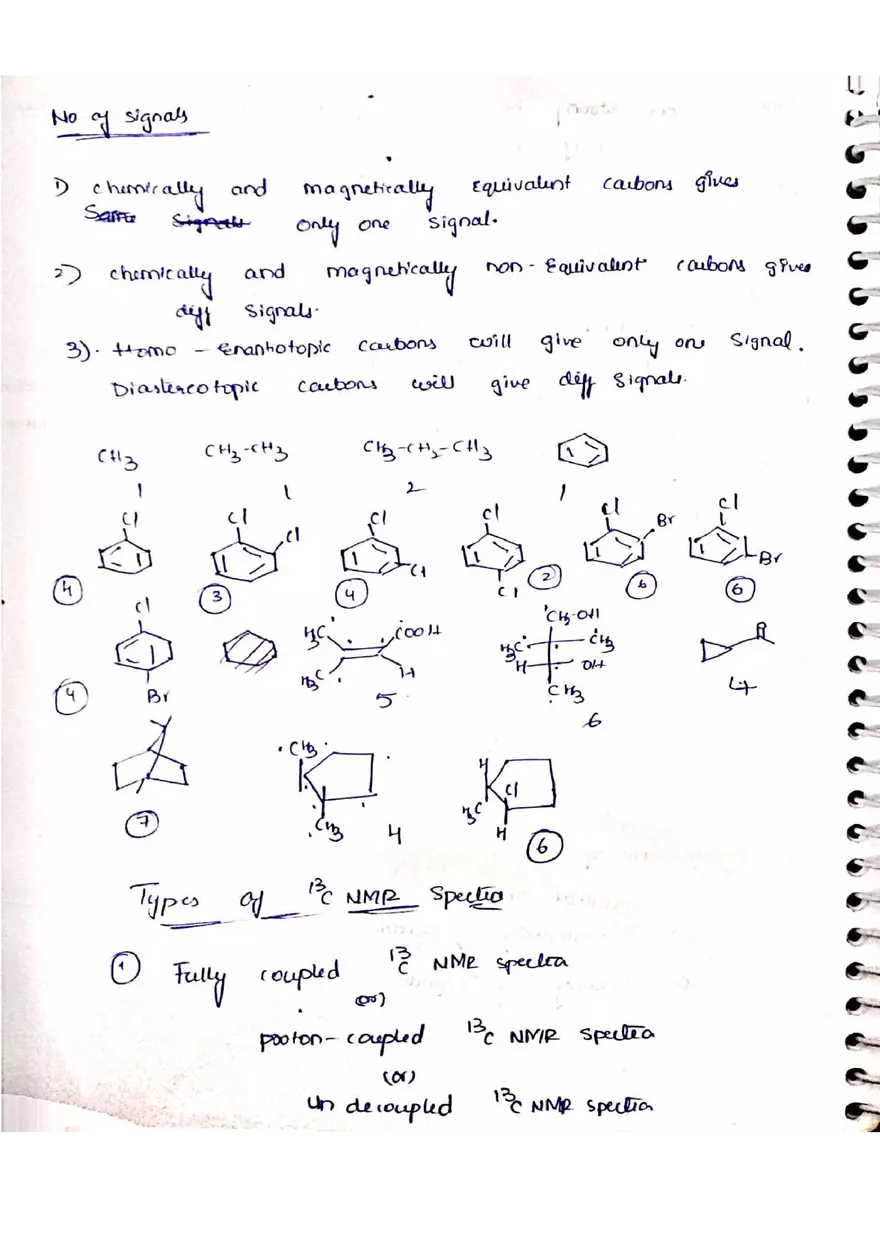 No of signals
1) chemically and magnetically Equivalent carbons gives
only one signal.
2) chemically and magnetically non-Equivalent carbons gives
diff signals.
3). Homo - Enantiotopic carbons will give only one signal.
Diastereotopic carbons will give diff signals.
CH3 CH3-CH3 CH3-CH2-CH3
1 1 2 1
Cl Cl Cl Cl Cl Cl Br Cl
Cl Cl Br
4 3 4 2 6 6
Cl H3C COOH 'CH2-OH
H3C CH3
H3C H H OH
4 Br 5 CH3 4
6
CH3 H Cl
H3C
7 CH3 4 H 6
Types of 13C NMR Spectra
1 Fully coupled 13C NMR spectra
(or)
proton-coupled 13C NMR spectra
(or)
Un decoupled 13C NMR spectra